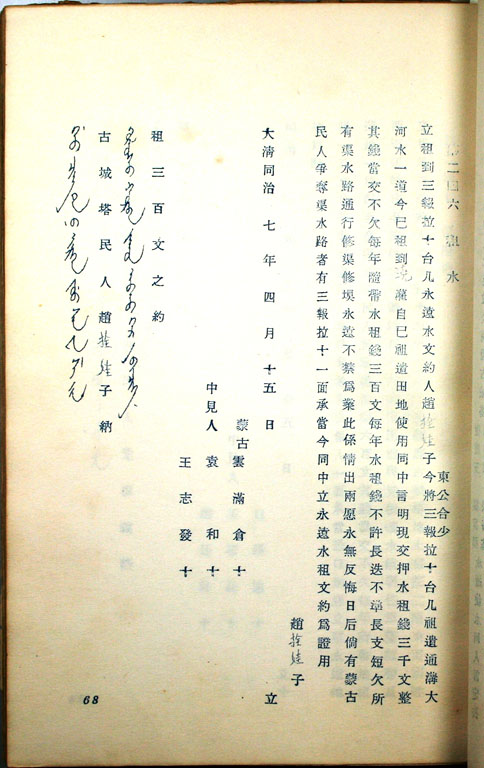 二四六 租 水
東公合少
立租到三報拉十台几永遠水文約人趙拴娃子今將三報拉十台几祖遺通溝大
河水一道今已租到 灌自已祖遺田地使用同中言明現交押水租錢三千文整
其錢當交不欠每年隨帶水租錢三百文每年水租錢不許長迭不準長支短欠所
有渠水路通行修渠修壩永遠不禁爲業此係情出兩愿永無反悔日后倘有蒙古
民人爭奪渠水路者有三報拉十一面承當今同中立永遠水租文約爲證用
趙拴娃子
大淸同治 七年四月十五日 立
蒙古 雲滿倉 十
中見人 袁和 十
王志發 十
租三百文之約
古城塔民人趙拴娃子納
68